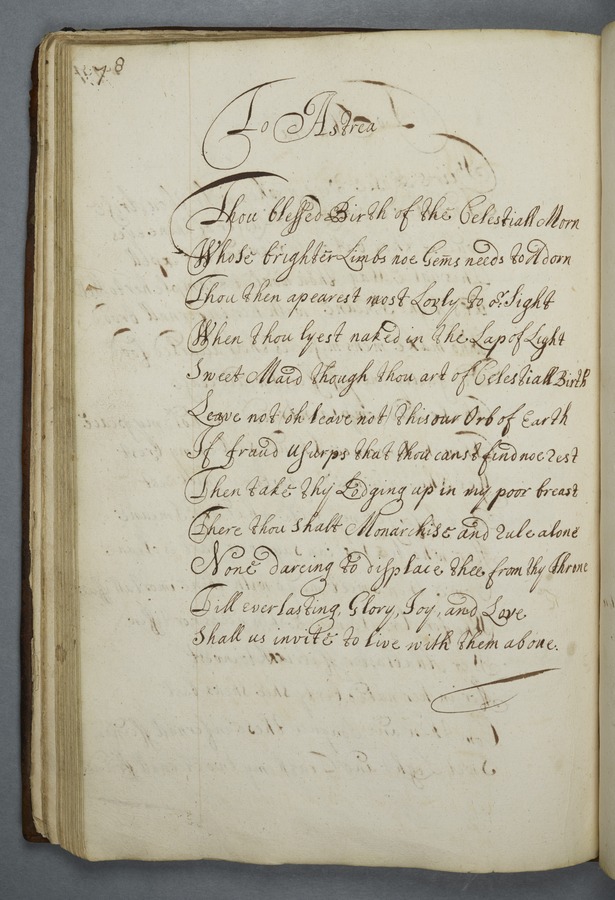 178
To Astrea
Thou blessed Birth of the Celestiall Morn
Whose brighter Limbs noe Gems needs to Adorn
Thou then apearest most Lovly to or. Sight
When thou lyest naked in the Lap of Light
Sweet Maid though thou art of Celestiall Birth
Leave not oh leave not this our Orb of Earth
If fraud usurps that thou canst find noe rest
Then take thy Lodging up in my poor breast
There thou shalt Monarchise and rule alone
None dareing to displace thee from thy throne
Till everlasting Glory, Joy, and Love
Shall us invite to live with them above.